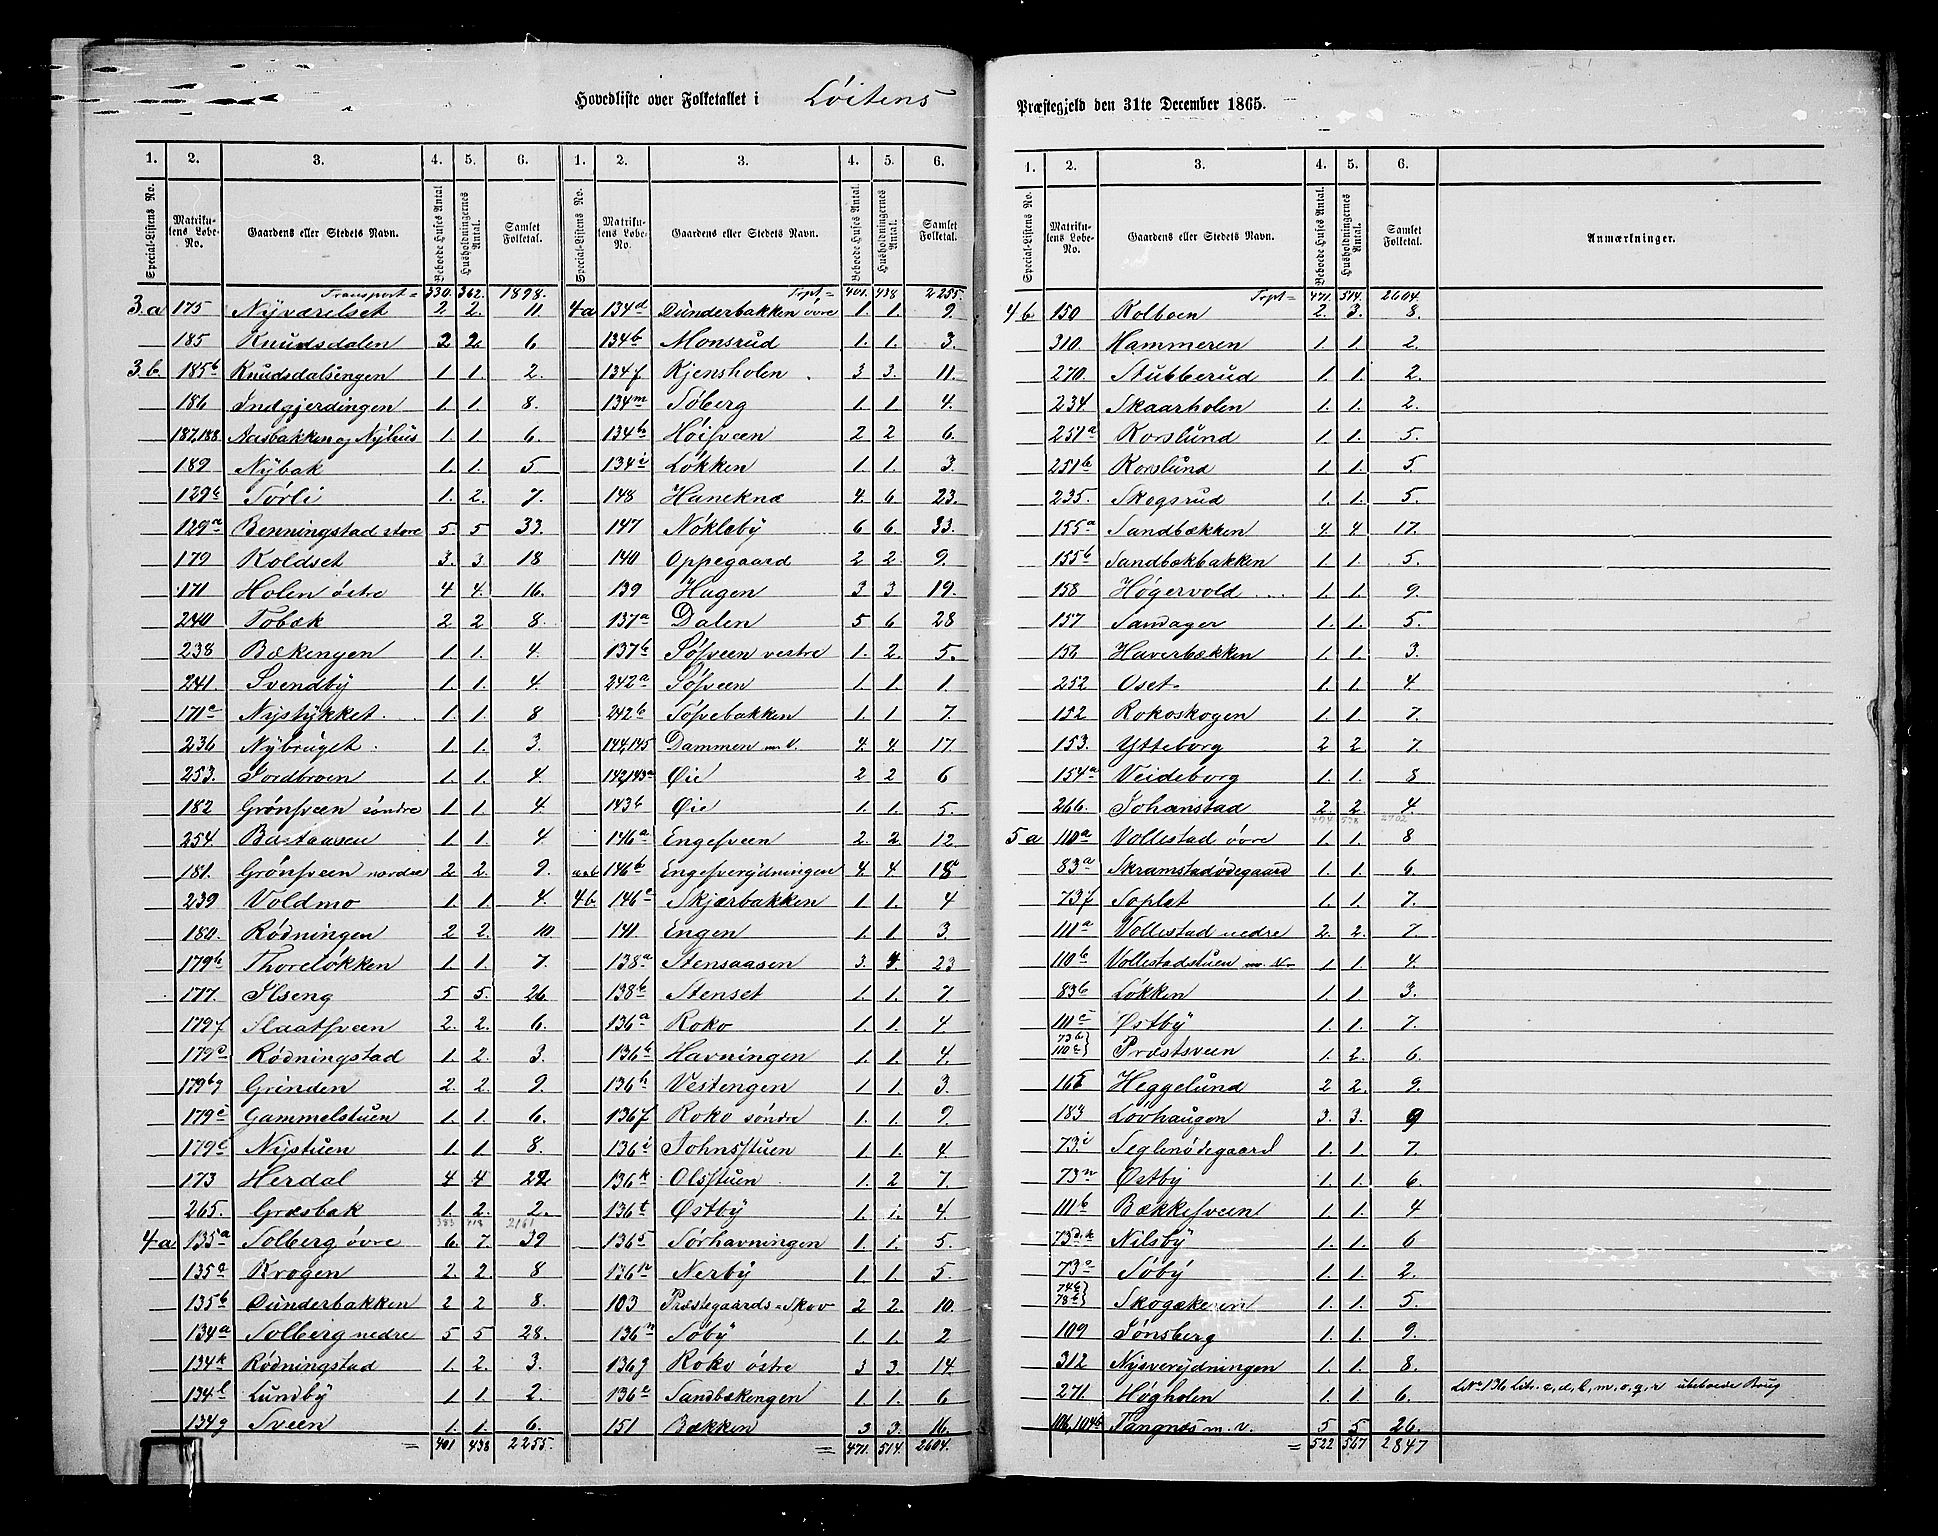 Hovedliste over Folketallet i Löitens
Præstegjeld den 31te December 1865.
1. 2. 3. 4. 5. 6. 1. 2. 3. 4. 5. 6.
Special-Listens No. Matrikulens Løbe-No. Gaardens eller Stedets Navn. Beboede Huses Antal. Husholdningernes Antal. Samlet Folketal. Special-Listens No. Matrikulens Løbe-No. Gaardens eller Stedets Navn. Beboede Huses Antal. Husholdningernes Antal. Samlet Folketal.
Transport = 330. 362. 1898.
3.a 175 Nyværelset 2 2. 11
185 Knudsdalen 2 2. 6
3.b. 185b Knudsdalsengen 1. 1. 2.
186 Indgjerdingen 1. 1. 8.
187,188 Aasbakken og Nyhus 1. 1. 6.
189 Nybak 1. 1. 5
129b Törli 1. 2. 7.
129a Benningstad store 5. 5 33.
179 Koldset 3. 3 18
171 Holen östre 4 4. 16.
240 Tobæk 2 2 8.
238 Bækengen 1. 1. 4.
241. Svendby 1. 1. 4.
171a Nystykket. 1. 1. 8
236 Nybruget. 1. 1. 3.
253. Jordbroen 1. 1. 4.
182 Grönsveen söndre 1. 1. 4.
254 Bastaasen 1. 1. 4
181. Grönsveen nordre 2 2. 9.
239 Voldmo 1. 1. 4.
180. Rödningen 2 2. 10.
179b Thorelökken 1. 1. 7.
177. Ilseng 5 5. 26.
179f Slaatsveen 2. 2. 6.
179d Rödningstad 1. 2. 3.
179bg Grinden 2. 2. 9.
179i Gammelstuen 1. 1. 6.
179c Nystuen 1. 1. 8.
173 Herdal 4 4 22
265. Græsbak 1. 2. 2.
383 418 2161
4a 135a Solberg övre 6. 7. 39
135a Krogen 2. 2. 8
135b Dunderbakken 2 2 8.
134a Solberg nedre 5 5 28.
134k Rödningstad 1. 2. 3.
134l Lundby 1. 1. 2.
134g Sveen 1. 1. 6.
= 401 438 2255.
Trpt = 401. 438 2255.
4a 134d Dunderbakken övre 1. 1. 9.
134b Monsrud 1. 1. 3.
134f Kjensholen. 3 3. 11.
134m Söberg 1. 1 4.
134h Höisveen 2 2 6.
134i Lökken 1. 1 3.
148 Haneknæ 4. 6 23.
147 Nökleby 6 6. 33.
140 Oppegaard 2 2. 9.
139 Hagen 3 3 19.
137a Dalen 5 6 28
137b Söfveen vestre 1. 2. 5.
242a Söfveen 1. 1. 1.
242b Söfvebakken 1. 1 7.
144,145 Dammen m. V. 4. 4. 17
142,143a Øie 2 2 6
143b Øie 1. 1. 5.
146a Engesveen 2. 2. 12
a&b 146b Engesverydningen 4. 4 18
4b. 146c Skjærbakken 1. 1. 4
141. Engen 1. 1 3.
138a Stensaasen 3. 4. 23
138b Stenset 1. 1. 7
136a Roko 1. 1. 4.
136b Havningen 1. 1. 4.
136h Vestengen 1 1 3.
136f Roko söndre 1. 1. 9.
136i Johnsstuen 1. 1. 4
136k Olsstuen 1. 2 7.
136t Østby 1. 1. 4.
136s Sörhavningen 1. 1. 5.
136p Nerby 1 1. 5.
103 Præstegaards-Skov 2 2. 10.
136n Söby 1. 1. 2
136g Roko östre 3 3. 14.
136a Sandbækengen 1. 1. 6
151 Bækken 3 3. 16.
= 471. 514. 2604.
1. 2. 3. 4. 5. 6.
Special-Listens No. Matrikulens Løbe-No. Gaardens eller Stedets Navn. Beboede Huses Antal. Husholdningernes Antal. Samlet Folketal. Anmærkninger.
Trpt = 471. 514. 2604.
4b 150 Kolboen 2. 3. 8.
310. Hammeren 1. 1. 2.
270. Stubberud 1. 1. 2.
234 Skaarholen 1. 1. 2.
251a Korslund 1. 1. 5.
251b Korslund 1. 1. 5.
235. Skogsrud 1. 1. 5.
155a Sandbækken 4. 4 17.
155b Sandbækbakken 1. 1. 5.
158 Högervold 1. 1. 9
157 Sandager 1. 1. 5.
156 Haverbækken 1. 1. 3
252 Oset 1. 1. 4
152 Rokoskogen 1. 1. 7.
153. Ytteborg 2 2 7.
154a Veideborg 1. 1. 8
266. Johanstad 2. 2. 4
494 538 2702
5a 110a Vollestad övre 1. 1. 8
83a Skramstadödegaard 1. 1. 6.
73f Soplet 1. 1. 7.
111a Vollestad nedre 2. 2. 7
110b Vollestadstuen m. V 1. 1. 4.
83b Lökken 1. 1. 3.
111c Østby 1. 1. 7.
73b 110c } Præstsveen 1. 2. 6.
165 Heggelund 2 2. 9.
183 Lövhaugen 3. 3. 9
73i Seglenödegaard 1. 1. 7.
73n Østby 1. 1. 6.
111b Bækkesveen 1. 1. 4
73d,k Nilsby 1. 1. 6
73o Söby 1. 1. 2.
74b 78b } Skogækeren 1. 1. 5.
109 Tönsberg 1. 1. 9.
312 Nysverydningen 1. 1. 8.
271 Høgholen 1. 1. 6. LNo 136 Litr. c, d, l, m, o, q, r ubeboede Brug
106,104b Tangnæs m. v. 5 5 26.
= 522 567 2847